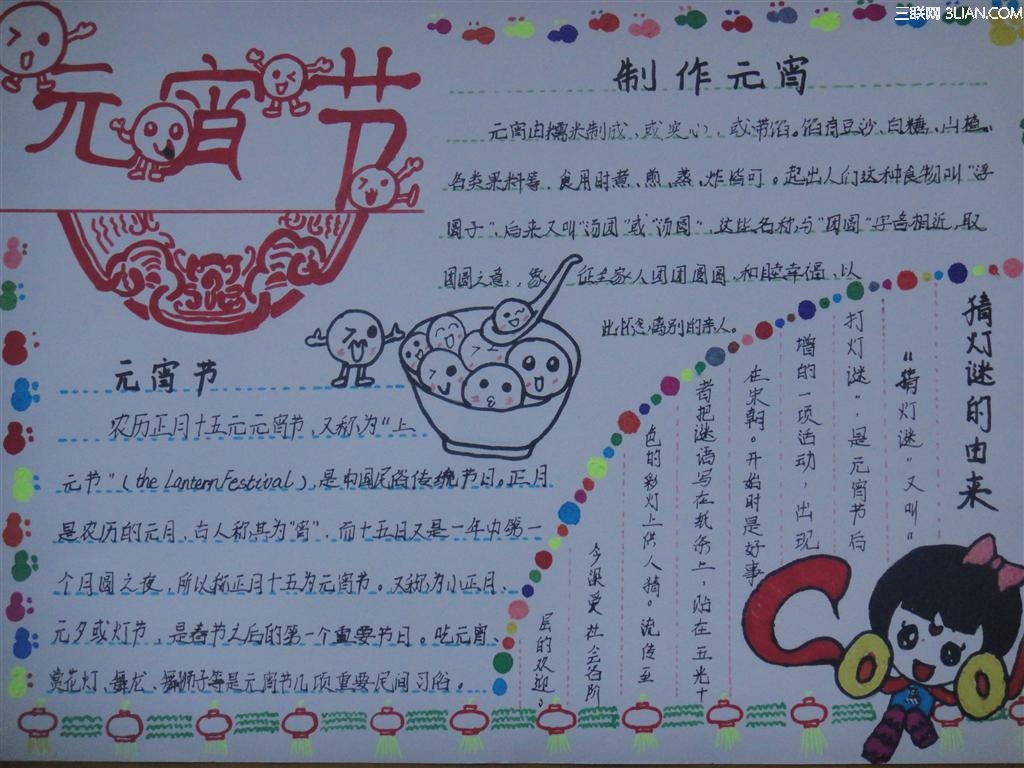 三联网 3LIAN.COM
元宵节
制作元宵
元宵由糯米制成，或实心，或带馅。馅有豆沙、白糖、山楂、
各类果料等，食用时煮、煎、蒸、炸皆可。起出人们这种食物叫“浮
圆子”，后来又叫“汤团”或“汤圆”，这些名称与“团圆”字音相近，取
团圆之意，象征全家人团团圆圆，和睦幸福，以
此怀念离别的亲人。
元宵节
农历正月十五元元宵节，又称为“上
元节”（the Lantern Festival），是中国民俗传统节日。正月
是农历的元月，古人称其为“宵”，而十五日又是一年中第一
个月圆之夜，所以称正月十五为元宵节。又称为小正月、
元夕或灯节，是春节之后的第一个重要节日。吃元宵、
赏花灯、舞龙、舞狮子等是元宵节几项重要民间习俗。
猜灯谜的由来
“猜灯谜”又叫“
打灯谜”，是元宵节后
增的一项活动，出现
在宋朝。开始时是好事
者把谜语写在纸条上，贴在五光十
色的彩灯上供人猜。流传至
今深受社会各阶
层的欢迎。